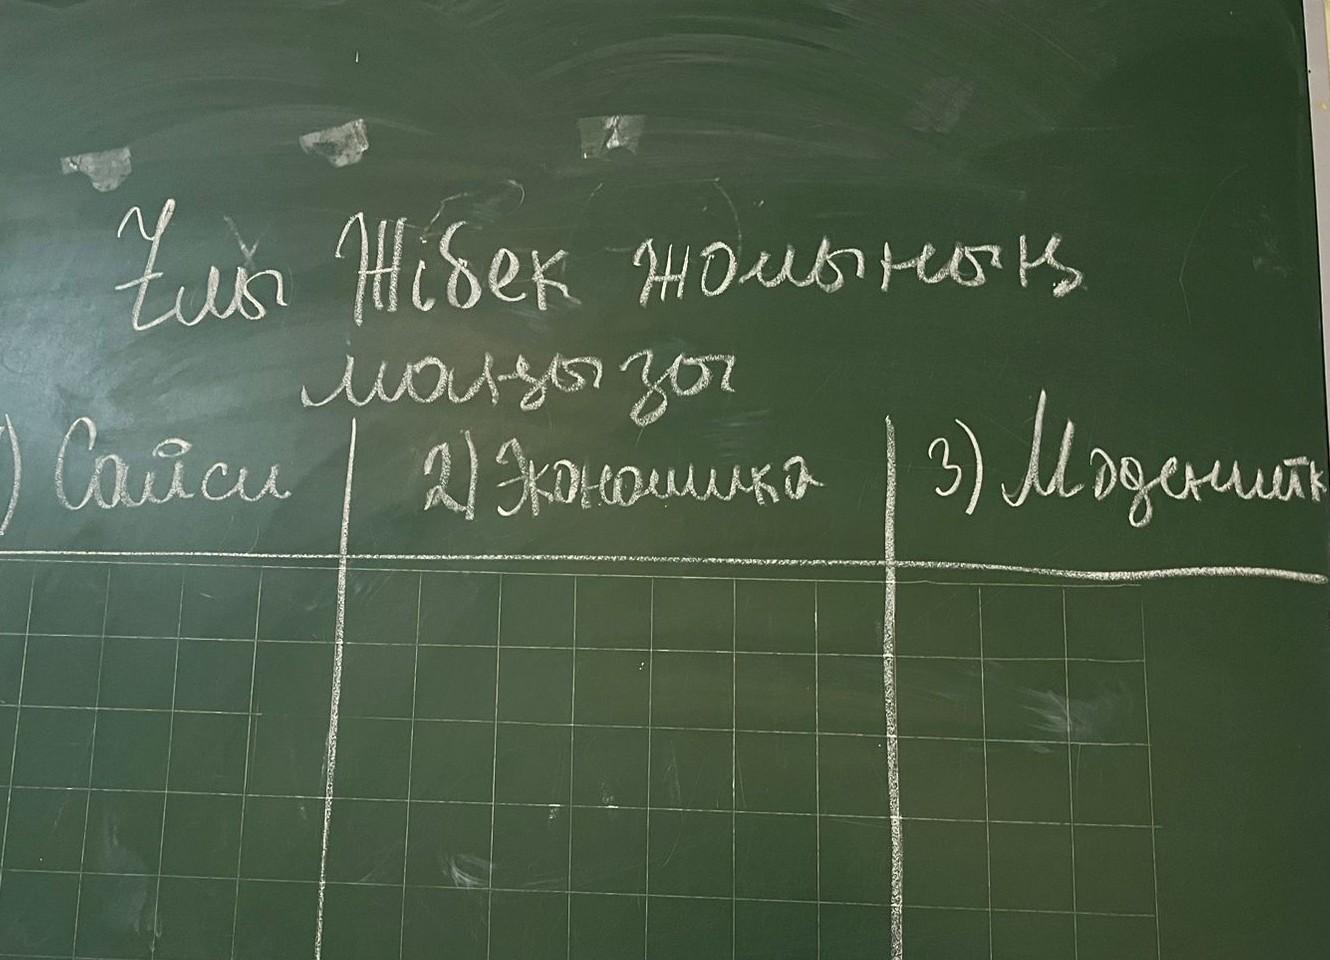 Ұлы Жібек жолының
маңызы
) Саяси 2) Экономика 3) Мәдениетк